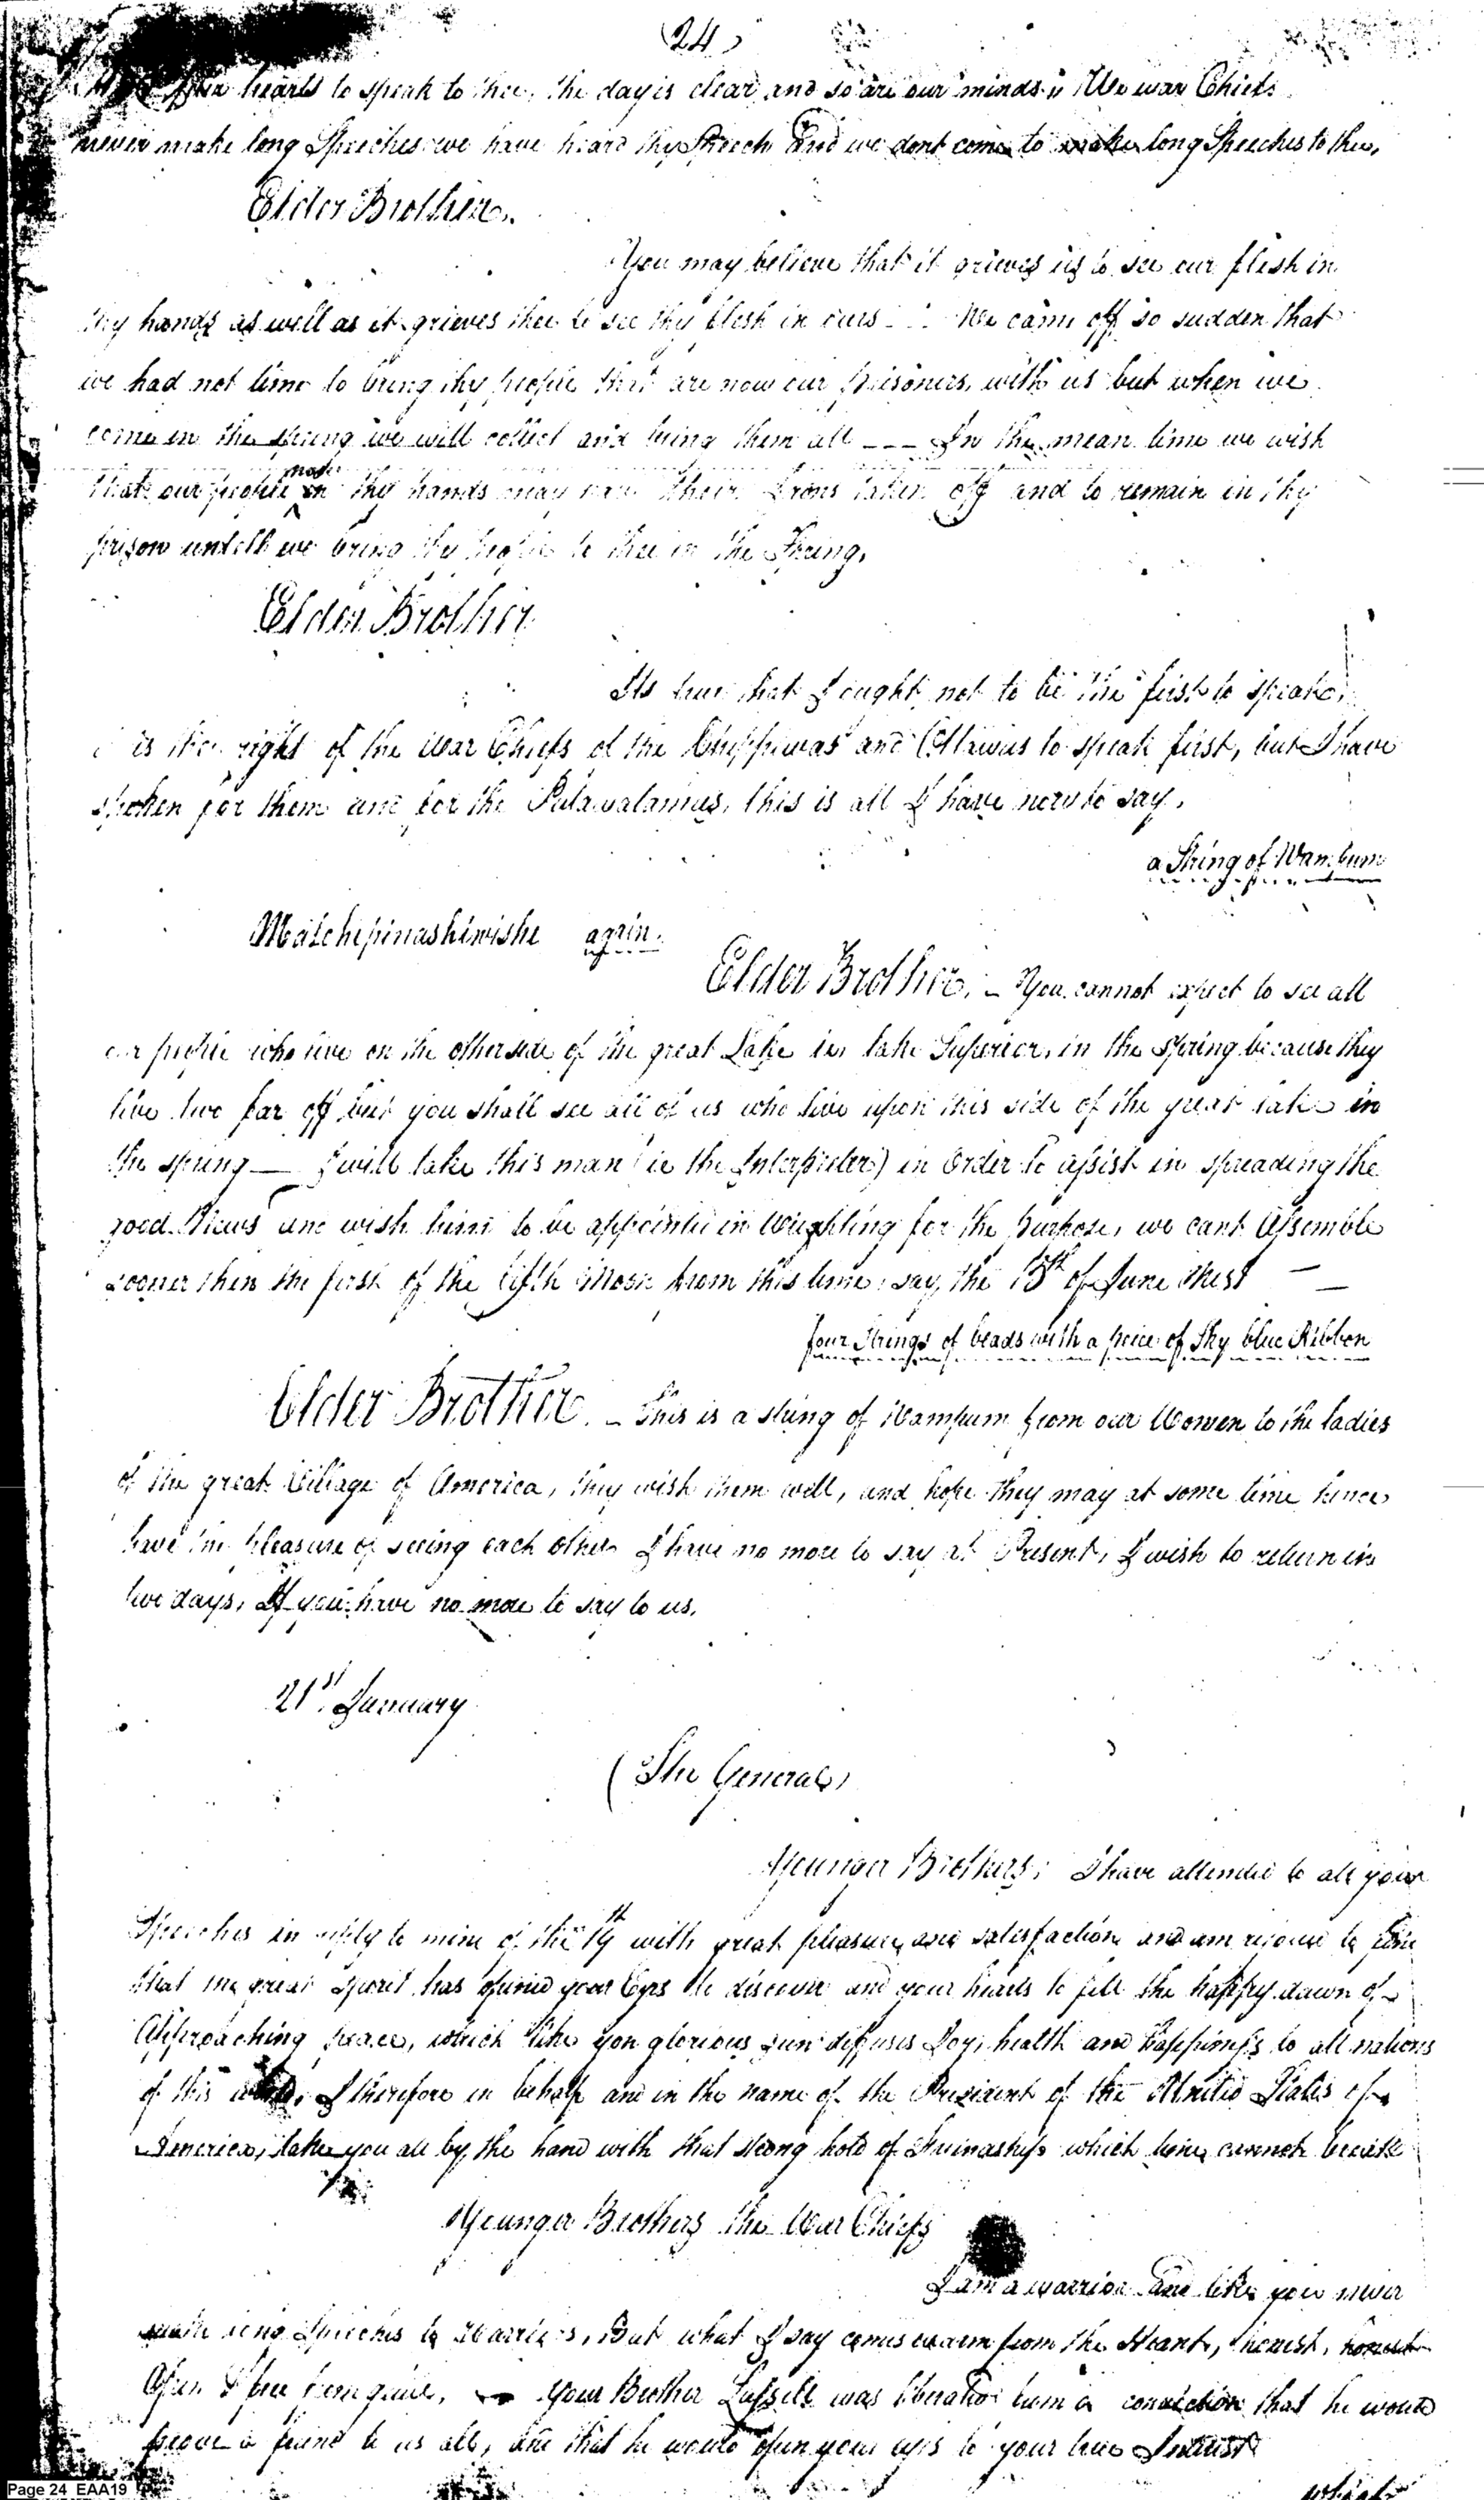 (24)
hearts to speak to thee, the day is clear and so are our minds. We war Chiefs
never make long Speeches we have heard thy Speech and we dont come to make long Speeches to thee,
Elder Brother,
You may believe that it grieves us to see our flesh in
thy hands as well as it grieves thee to see thy flesh in ours - We came off so sudden that
we had not time to bring thy people that are now our prisoners, with us but when we
come in the spring we will collect and bring them all --- In the mean time we wish
that our people now in thy hands may have their Irons taken off and to remain in thy
prison untill we bring thy people to thee in the Spring,
Elder Brother
Its true that I ought not to be the first to speak,
is the right of the War Chiefs of the Chippewas and Ottawas to speak first, but I have
spoken for them and for the Putawatamies, this is all I have now to say,
a String of Wampum
Matchepinashiwishe again.
Elder Brother, - You cannot expect to see all
our people who live on the other side of the great Lake ie, lake Superior, in the spring because they
live two far off but you shall see all of us who live upon this side of the great lake in
the spring — I will take this man (ie the Interpreter) in Order to assist in spreading the
good News and wish him to be appointed in Wrighting for the purpose, we cant Assemble
sooner then the first of the fifth Moon from this time, say, the 15th of June Next —
four Strings of beads with a peice of Sky blue Ribbon
Elder Brother. - This is a string of Wampum from our Women to the ladies
of the great Village of America, they wish them well, and hope they may at some time hence
have the pleasure of seeing each other I have no more to say at Present, I wish to return in
two days, If you have no more to say to us.
21st January
(The General)
Younger Brothers; I have attended to all your
Speeches in reply to mine of the 19th with great pleasure and satisfaction and am rejoiced to find
that the great Spirit has opened your Eyes to discover and your hearts to fell the happy dawn of
Approaching peace, which like yon glorious sun diffuses Joy, health and happiness to all nations
of this world, I therefore in behalf and in the name of the President of the United States of
America, take you all by the hand with that strong hold of Friendship which time cannot break
Younger Brothers the War Chiefs
I am a warrior and like you never
make long Speeches to Warriors, But what I say comes warm from the Heart, honest,
Open & free from guile, your Brother Lassell was liberated from a conviction that he would
prove a friend to us all, and that he would open your eyes to your true Intrust
which
Page 24 EAA19